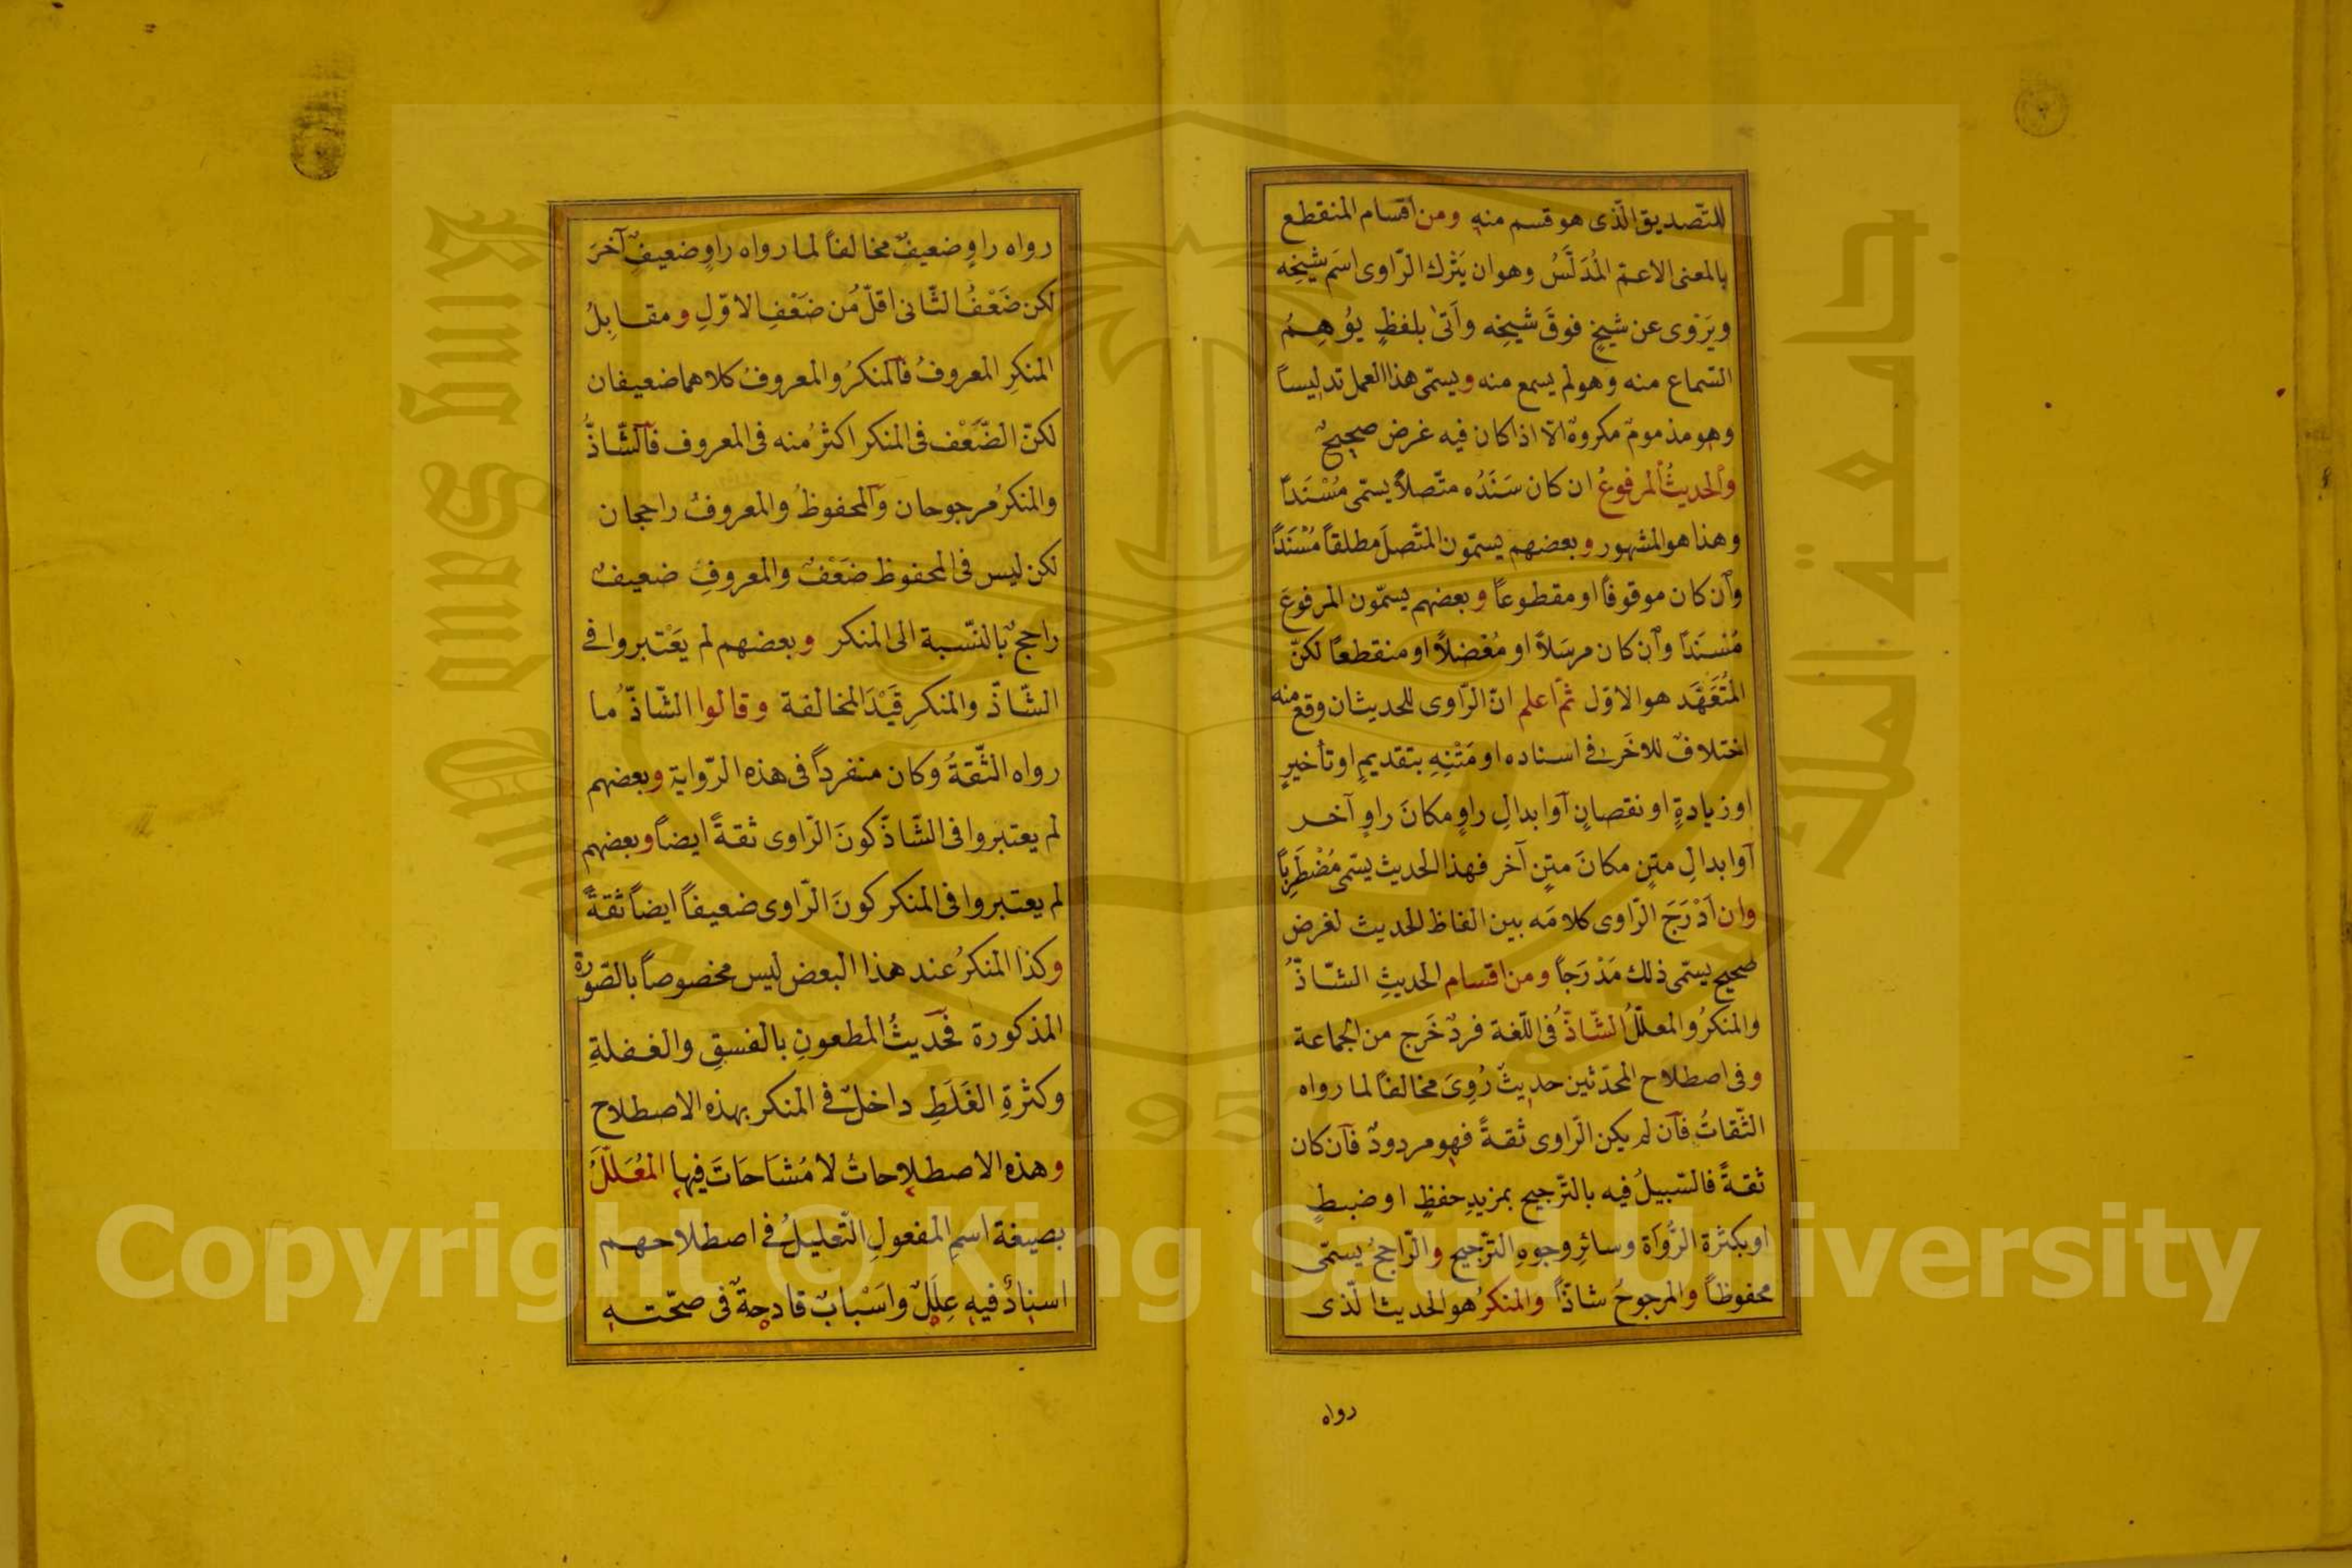 للتّصديق الّذى هو قسم منه ومن اقسام المنقطع
بالمعنى الاعمّ المُدَلَّسُ وهو ان يَتْرك الرّاوى اسَم شيخِه
ويَرْوى عن شيخٍ فوقَ شيخِه واَتىٰ بلفظٍ يُوهِمُ
السّماع منه وهو لم يسمع منه ويسمّى هذا العمل تدليساً
وهو مذمومٌ مكروهٌ الّا اذا كان فيه غرض صحيحٌ
والحديثُ المرفوعُ ان كان سَنَدُه متّصلاً يسمّى مُسْنَداً
وهذا هو المشهور وبعضهم يسمّون المتّصلَ مطلقاً مُسْنَداً
وان كان موقوفاً او مقطوعاً وبعضهم يسمّون المرفوعَ
مُسنَدًا وان كان مرسَلاً او مُعْضلاً او منقطعًا لكنّ
المُتَعَهَّد هو الاوّل ثمّ اعلم انّ الرّاوى للحديث ان وقع منه
اختلافٌ للاخَر فى اسناده او مَتْنِهِ بتقديمٍ او تأخيرٍ
او زيادةٍ او نقصانٍ اَو ابدالِ راوٍ مكانَ راوٍ آخر
اَو ابدالِ متنٍ مكانَ متنٍ آخر فهذا الحديث يسمّى مُضْطَرِباً
وان اَدْرَجَ الرّاوى كلامَه بين الفاظ الحديث لغرض
صحيح يسمّى ذلك مَدْرَجاً ومن اقسام الحديثِ الشّاذُّ
والمنكرُ والمعلّلُ الشّاذُّ فى اللّغة فردٌ خَرج من الجماعة
وفى اصطلاح المحدّثين حديثٌ رُوِىَ مخالفاً لما رواه
الثّقاتُ فان لم يكن الرّاوى ثقةً فهو مردودٌ فان كان
ثقةً فالسّبيلُ فيه بالتّرجيح بمزيدِ حفظٍ او ضبطٍ
او بكثرة الرُّوَاة وسائرِ وجوهِ التّرجيح والرّاجحُ يسمّى
محفوظاً والمرجوحُ شاذّاً والمنكرُ هو الحديث الّذى
رواه
رواه راوٍ ضعيفٌ مخالفاً لما رواه راوٍ ضعيفٍ آخرَ
لكن ضَعْفُ الثّانى اقلّ مُن ضَعْفِ الاوّلِ ومقابِلُ
المنكرِ المعروفُ فالمنكرُ والمعروفُ كلاهما ضعيفان
لكنّ الضّعْف فى المنكر اكثرُ منه فى المعروف فالشّاذُّ
والمنكرُ مرجوحان والمحفوظُ والمعروفُ راجحان
لكن ليس فى المحفوظ ضَعْفٌ والمعروفِ ضعيفٌ
راجحٌ بالنّسبة الى المنكر وبعضهم لم يَعْتبروا فى
الشّاذّ والمنكرِ قَيْدَ المخالفة وقالوا الشّاذّ ما
رواه الثّقةُ وكان منفرداً فى هذه الرّواية وبعضهم
لم يعتبروا فى الشّاذّ كونَ الرّاوى ثقةً ايضاً وبعضهم
لم يعتبروا فى المنكر كونَ الرّاوى ضعيفاً ايضاً ثقةً
وكذا المنكرُ عند هذا البعض ليس مخصوصاً بالصّورة
المذكورة فحديثُ المطعونِ بالفسقِ والغفلةِ
وكثرةِ الغَلَطِ داخلٌ فى المنكر بهذه الاصطلاح
وهذه الاصطلاحاتُ لا مُشَاحَاتَ فيها المُعَلّلُ
بصيغة اسمِ المفعولِ التّعليلُ فى اصطلاحهم
اسنادٌ فيهِ عِلَلٌ واَسْبابٌ قادحةٌ فى صحّتهِ
جامعة الملك سعود
King Saud University
1957
Copyright © King Saud University